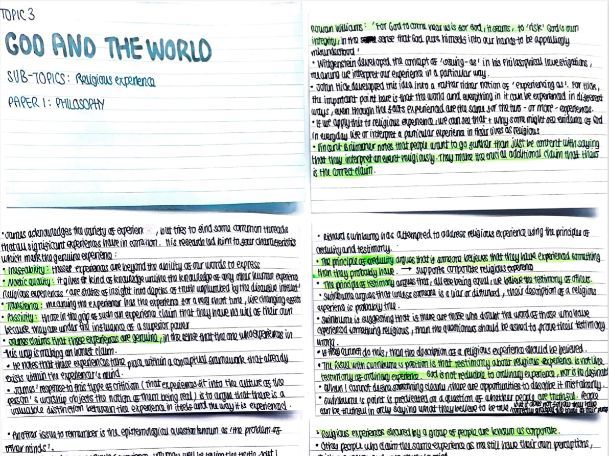 TOPIC 3
GOD AND THE WORLD
SUB-TOPICS: Religious experience
PAPER 1: PHILOSOPHY
Rowan Williams: 'For God to come near us is for God, it seems, to 'risk' God's own
integrity, in the sense that God puts himself into our hands to be appallingly
misunderstood'
• Wittgenstein developed the concept of 'seeing-as' in his Philosophical Investigations,
meaning we interpret our experience in a particular way.
• John Hick developed this idea into a rather wider notion of 'experiencing as'. For Hick,
the important point here is that the world and everything in it could be experienced in different
ways, even though the facts experienced are the same for the two - or more - experiences.
• If we apply this to religious experience, we can see that why some might see evidence of God
in everyday life or interpret a particular experience in their lives as religious.
• Vincent Brümmer notes that people want to go further than just be content with saying
that they interpret an event religiously. They make the crucial additional claim that theirs
is the correct claim.
• James acknowledges the variety of experience, but tries to find some common threads
that all significant experiences have in common. This research led him to four characteristics
which mark the genuine experience:
• Ineffability: these experiences are beyond the ability of our words to express
• Noetic quality: it gives a kind of knowledge unlike the knowledge of any other human experience
Religious experiences 'are states of insight into depths of truth unplumbed by the discursive intellect'
• Transiency: meaning the experiencer has the experience for a very short time, life changing effects
• Passivity: those in the grip of such an experience claim that they have no will of their own
because they are under the influence of a superior power
• James claims that these experiences are genuine, in the sense that the one who experiences in
this way is making an honest claim.
• He notes that these experiences take place within a conceptual framework that already
exists within the experiencer's mind.
• James' response to this type of criticism (that experiences fit into the culture of the
person's world objects the notion of them being real) is to argue that there is a
valuable distinction between the experience in itself and the way it is expressed.
• Another issue to remember is the epistemological question known as 'the problem of
other minds'.
• Richard Swinburne has attempted to address religious experience using the principles of
credulity and testimony.
• The principle of credulity argues that if someone believes that they have experienced something
then they probably have. support corporate religious experience
• The principle of testimony argues that, all else being equal, we believe the testimony of others.
• Swinburne argues that unless someone is a liar or disturbed, their description of a religious
experience is probably true.
• Swinburne is suggesting that if there are those who doubt the word of those who have
experienced something religious, then the questioners should be asked to prove their testimony
wrong.
• If they cannot do this, then the description as a religious experience should be believed.
• The issue with Swinburne's position is that testimony about religious experience is not like
testimony of ordinary experience. God is not reducible to ordinary experience, nor is he
• When I cannot describe something clearly there are opportunities to describe it mistakenly.
• Swinburne's point is predicated on a question of whether people are truthful. People
can be truthful in only saying what they believe to be true
• Religious experiences endured by a group of people are known as corporate.
• Other people who claim the same experience as me still have their own perceptions,